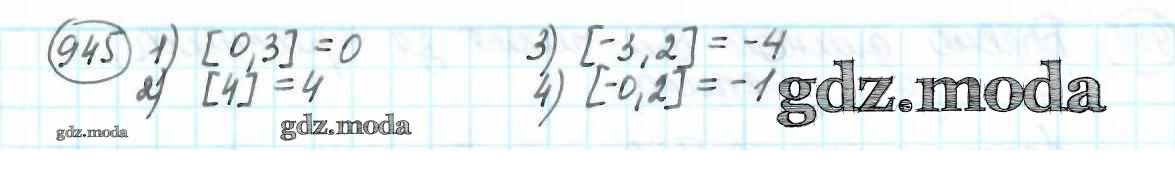 945 1) [0,3] = 0 3) [-3,2] = -4
2) [4] = 4 4) [-0,2] = -1
gdz.moda gdz.moda gdz.moda